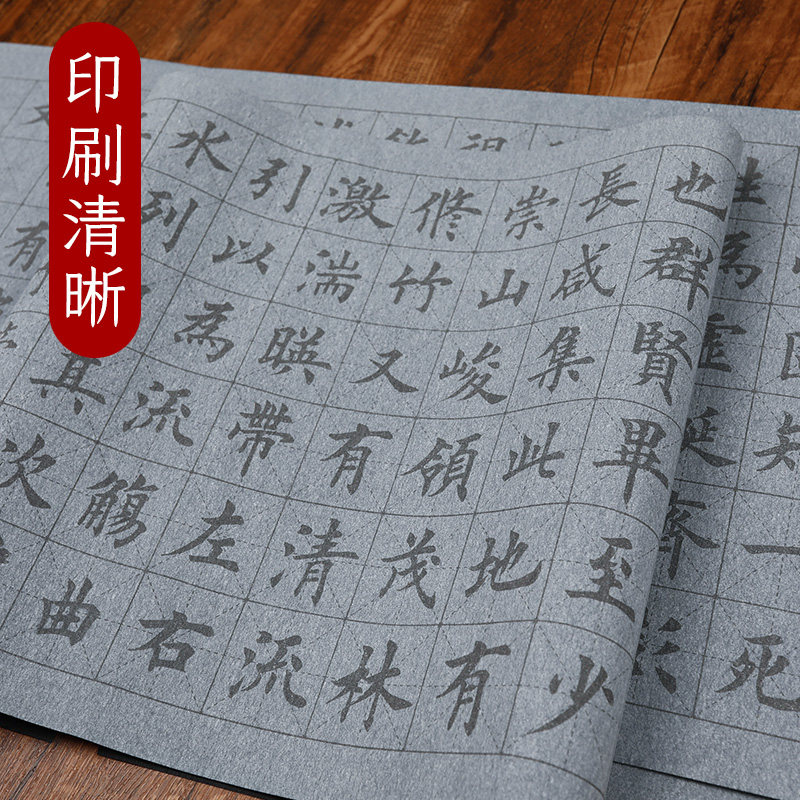 印刷清晰
知一死
也群賢畢至少
長咸集此地有
崇山峻領茂林
修竹又有清流
激湍暎帶左右
引以為流觴曲
水列其次
有